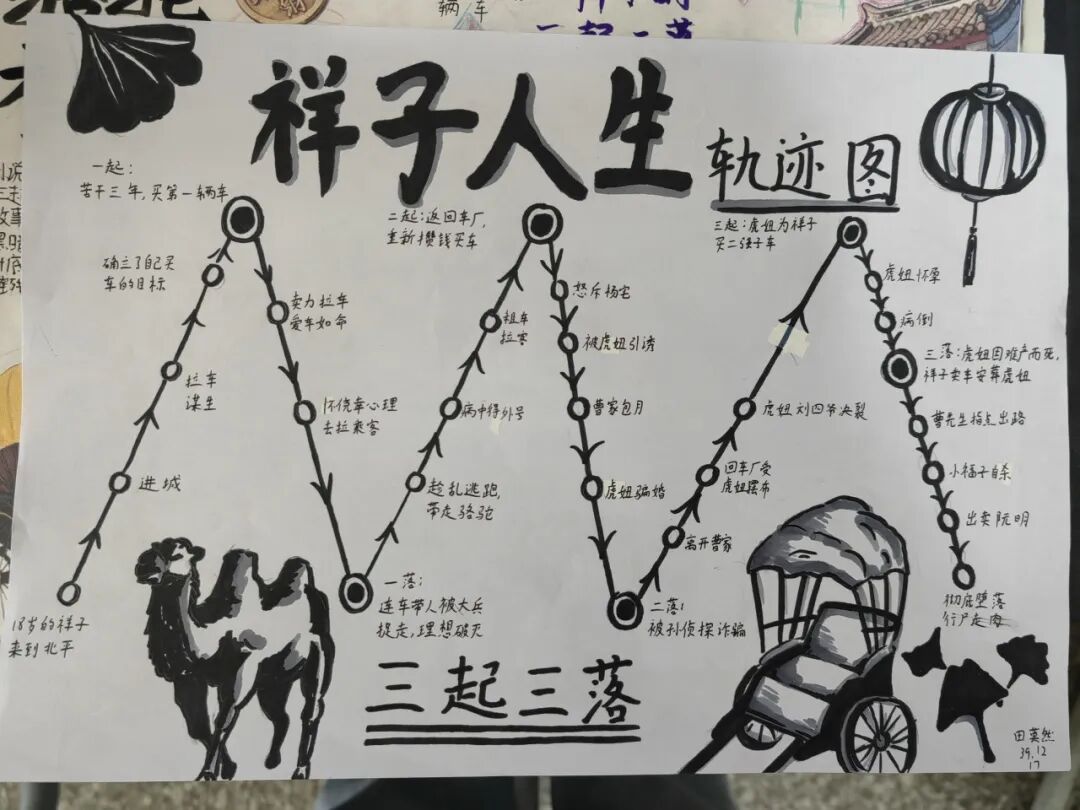 辆车
祥子人生
轨迹图
一起：
苦干三年，买第一辆车
确立了自己买
车的目标
拉车
谋生
进城
18岁的祥子
来到北平
卖力拉车
爱车如命
怀侥幸心理
去拉乘客
一落：
连车带人被大兵
捉走，理想破灭
二起：返回车厂，
重新攒钱买车
租车
拉客
病中得外号
趁乱逃跑，
带走骆驼
怒斥杨宅
被虎妞引诱
曹家包月
虎妞骗婚
二落：
被孙侦探诈骗
三起：虎妞为祥子
买二强子车
虎妞刘四爷决裂
回车厂受
虎妞摆布
离开曹家
虎妞怀孕
病倒
三落：虎妞因难产而死，
祥子卖车安葬虎妞
曹先生指点出路
小福子自杀
出卖阮明
彻底堕落
行尸走肉
三起三落
39.12
17